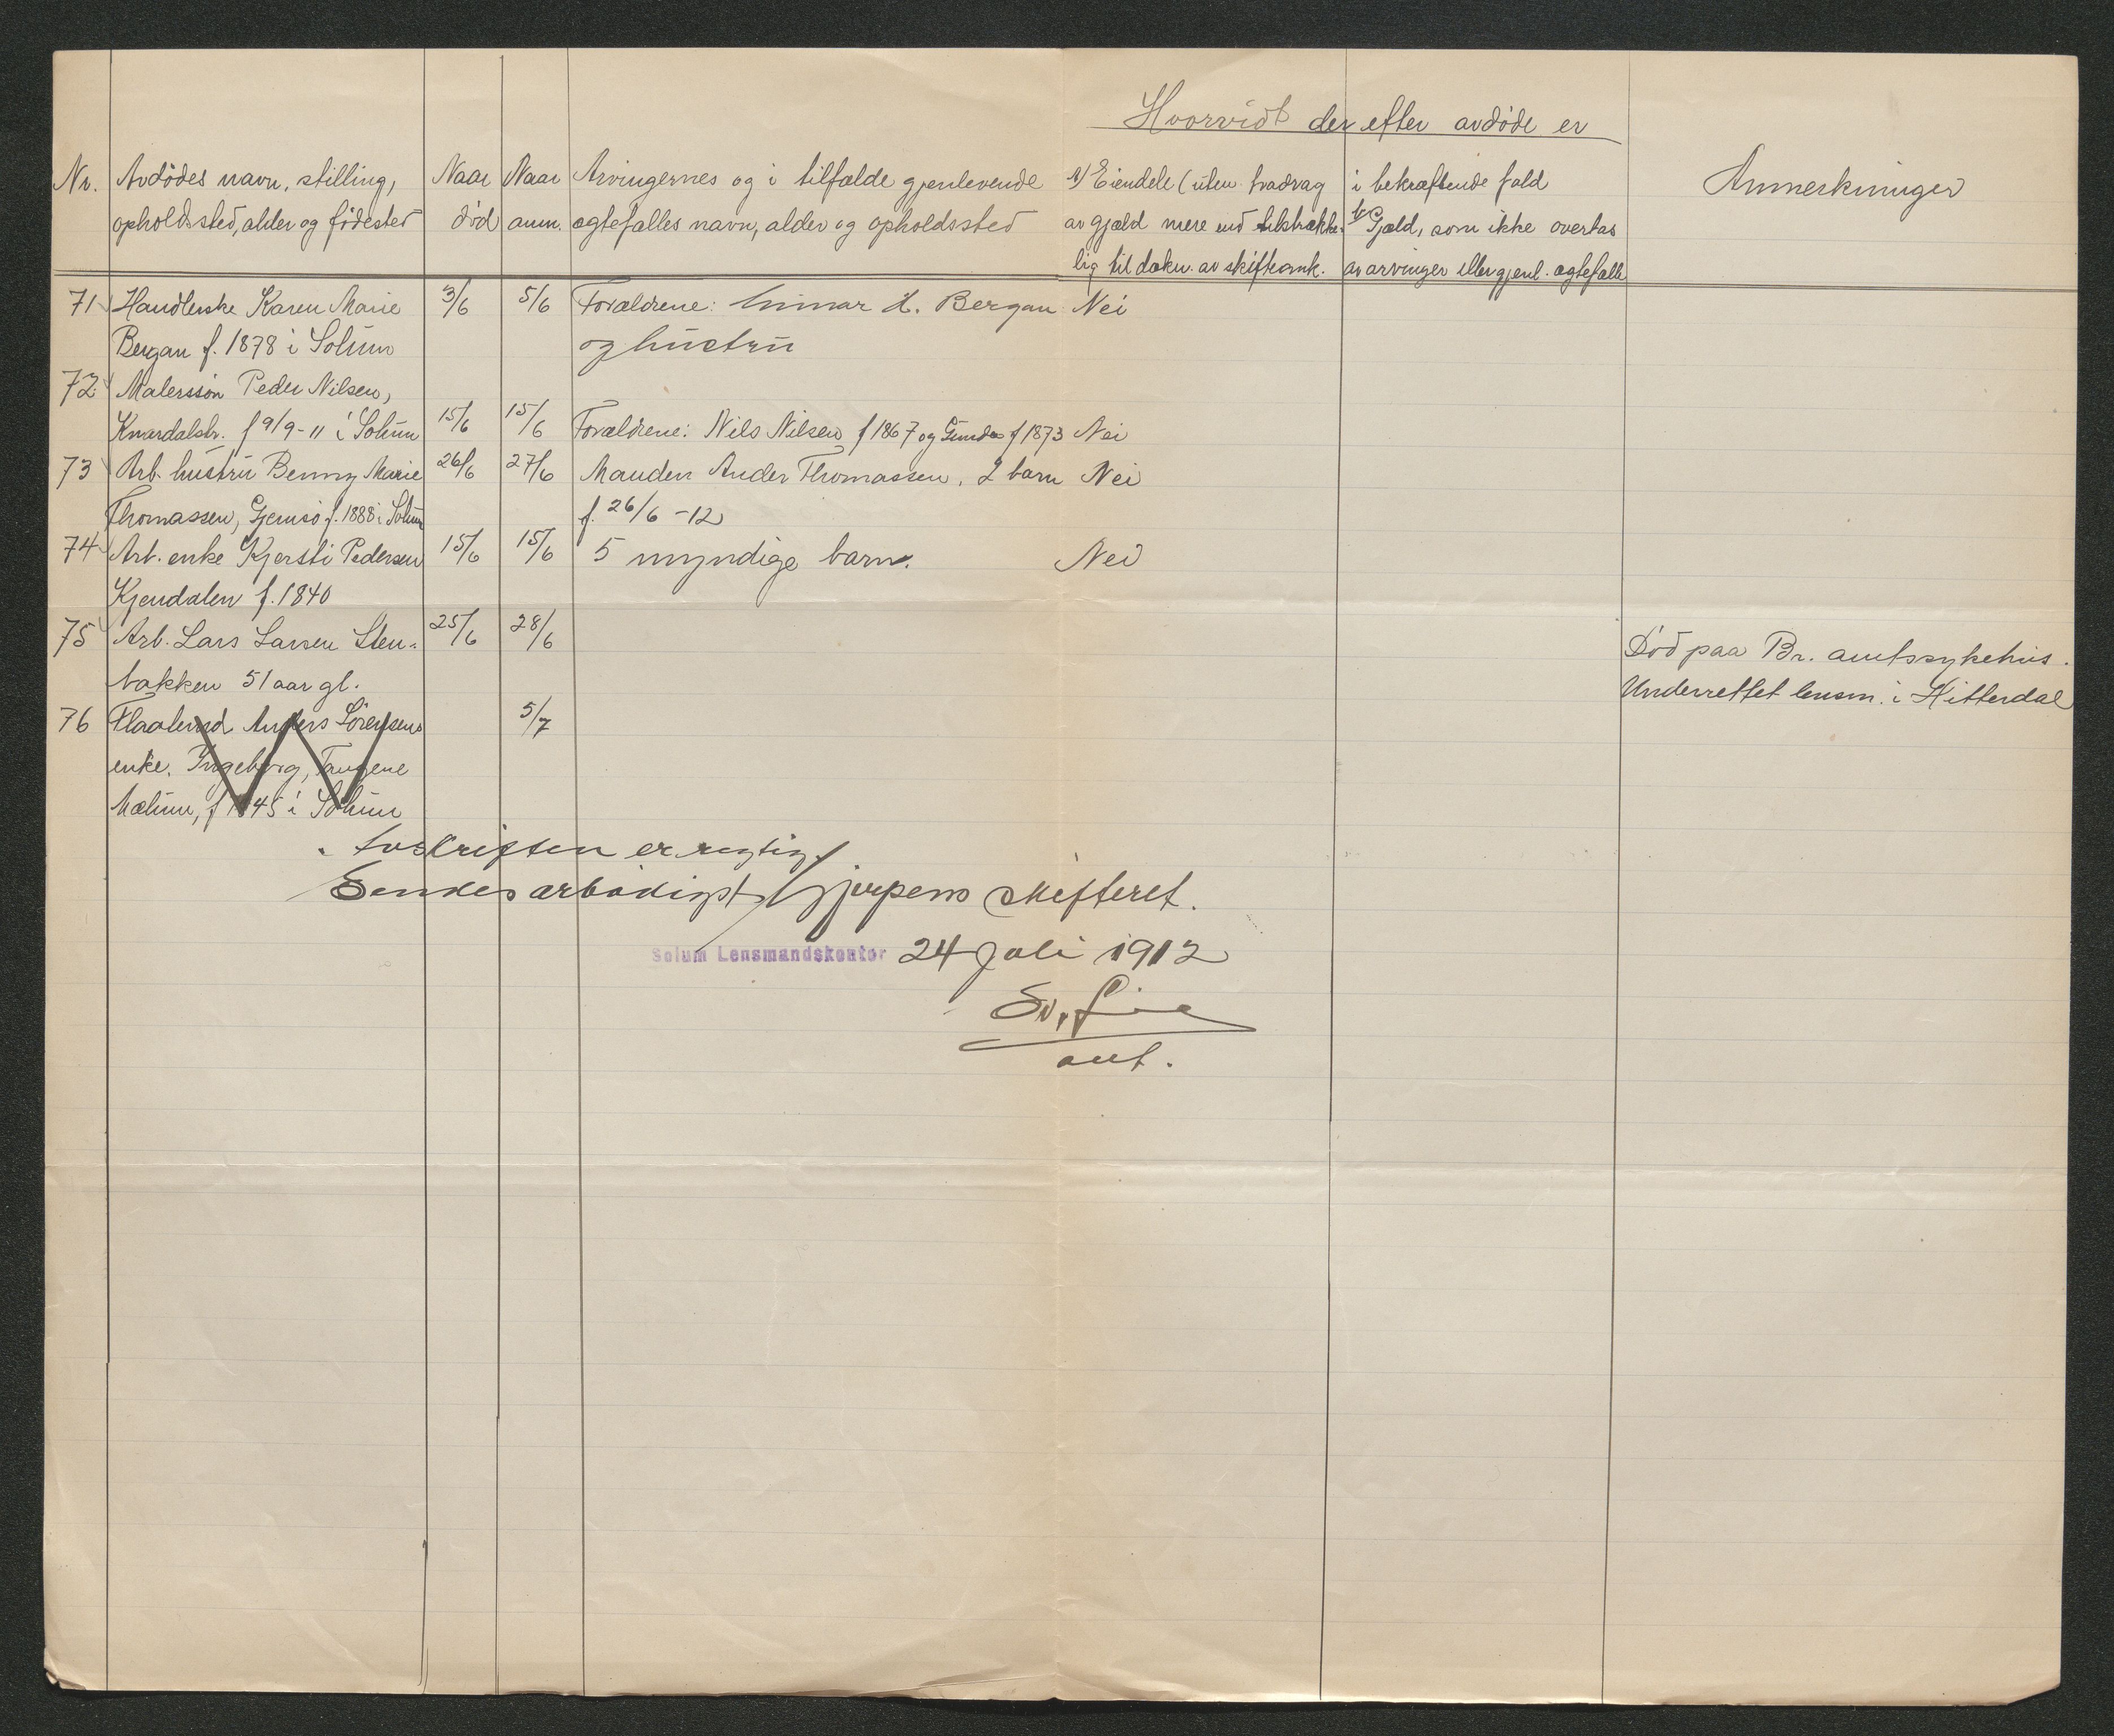 Hvorvidt der efter avdøde er
Nr. Avdødes navn, stilling, Naar Naar Arvingernes og i tilfælde gjenlevende a) Eiendele (uten fradrag i bekræftende fald Anmerkninger
opholdssted, alder og fødested død anm. ægtefælles navn, alder og opholdssted av gjæld mere end tilstrække- b/ Gjæld, som ikke overtas
lig til dækn. av skifteomk. av arvinger eller gjenl. ægtefælle
71 Handlerske Karen Marie 3/6 5/6 Forældrene: H. Bergan Nei
Bergan f. 1878 i Solum og hustru
72 Malerssøn Peder Nilsen,
Knardalstr. f 9/9-11 i Solum 15/6 15/6 Forældrene: Nils Nilsen f 1867 og f 1873 Nei
73 Arb. hustru Benny Marie 26/6 27/6 Manden Ander Thomassen, 2 barn Nei
Thomassen, Gjemsø f. 1888 i Solum f. 26/6 -12
74 Arb. enke Kjersti Pedersen 15/6 15/6 5 myndige barn. Nei
Kjendalen f. 1840
75 Arb. Lars Larsen Sten- 25/6 28/6 Død paa Br. amtssykehus.
bakken 51 aar gl. Underrettet lensm. i Hitterdal
76 Anders Sörensens 5/7
enke. Ingeborg, Tangene
Mælum, f 1845 i Solum
Avskriften er rigtig.
Sendes ærbødigst Gjerpens skifteret.
Solum Lensmandskontor 24 Juli 1912
Sv. Lie
aut.